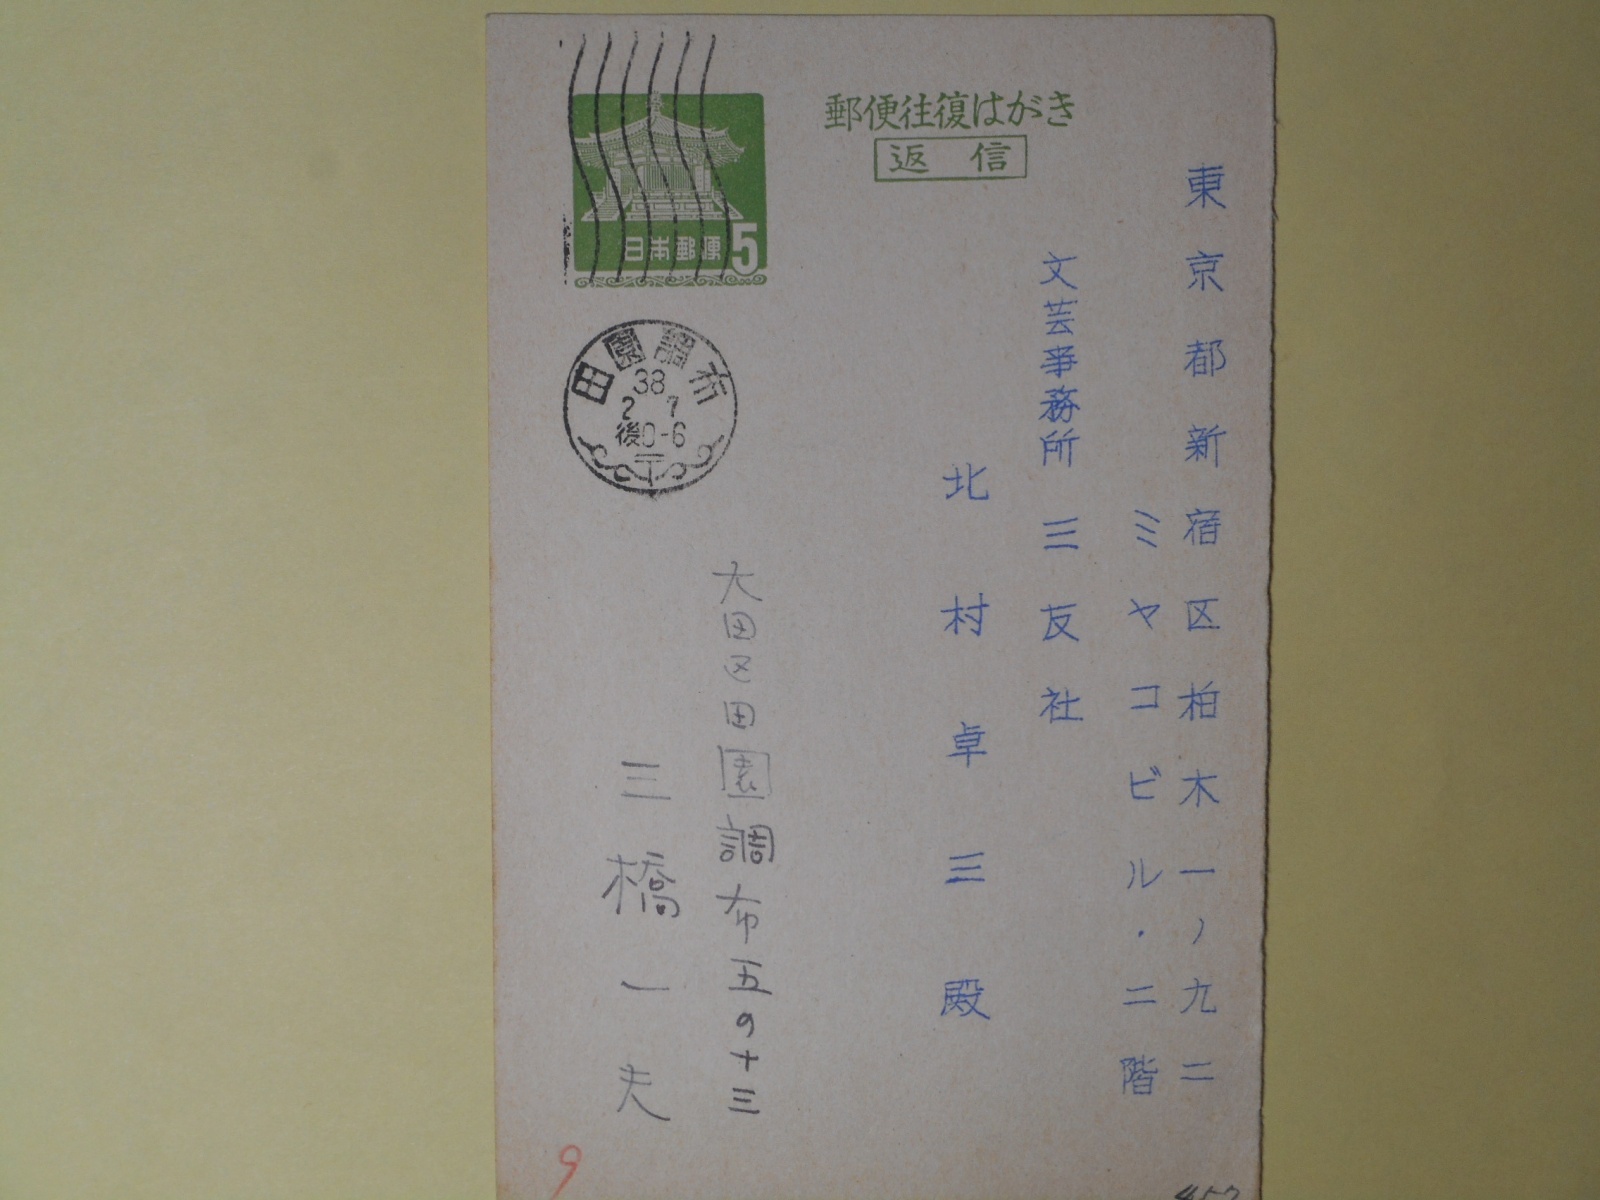 郵便往復はがき
返信
日本郵便 5
田園調布
38
2 7
後0-6
東京都新宿区柏木一ノ九二
ミヤコビル・二階
文芸事務所 三友社
北村卓三殿
大田区田園調布五の十三
三橋一夫
9